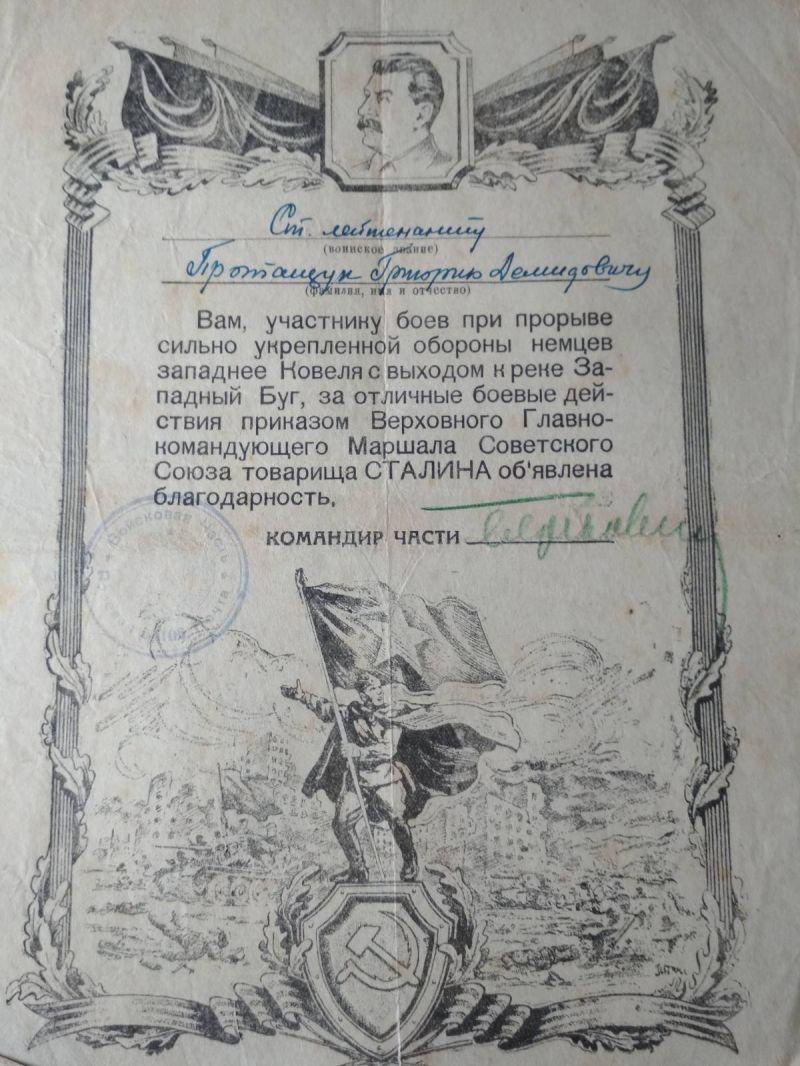 Ст. лейтенанту
(воинское звание)
Протащук Григорию Демидовичу
(фамилия, имя и отчество)
Вам, участнику боев при прорыве
сильно укрепленной обороны немцев
западнее Ковеля с выходом к реке За-
падный Буг, за отличные боевые дей-
ствия приказом Верховного Главно-
командующего Маршала Советского
Союза товарища СТАЛИНА об'явлена
благодарность.
КОМАНДИР ЧАСТИ
Войсковая часть